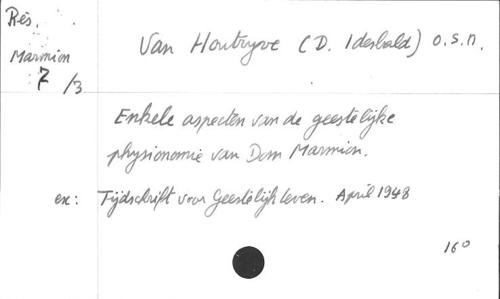 Rés.
Van Houtryve (D. Idesbald) o.s.n.
Marmion
7 /3
Enkele aspecten van de geestelijke
physionomie van Dom Marmion.
ex: Tijdschrift voor Geestelijk leven. April 1948
16°